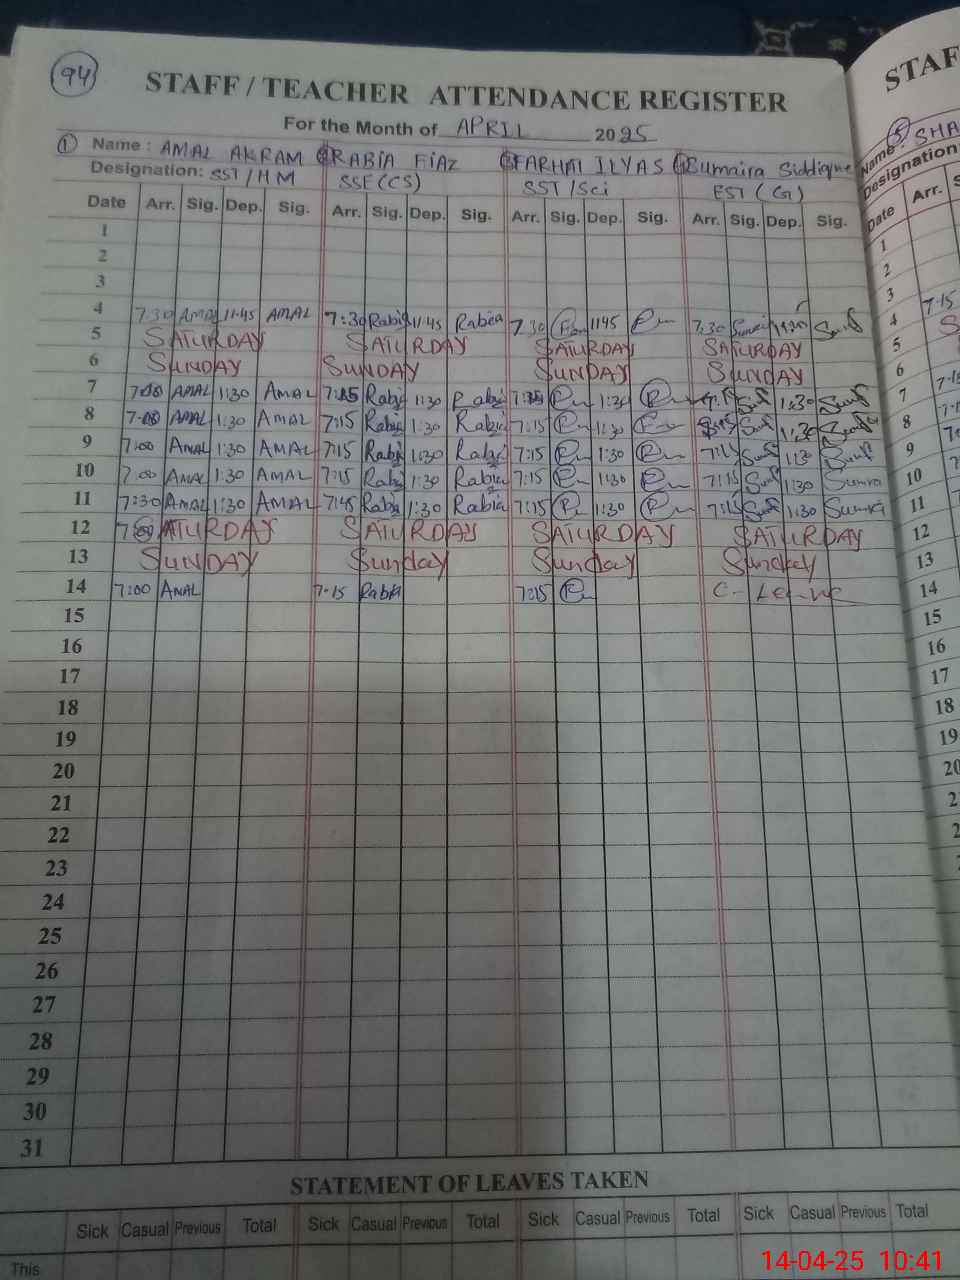 94
STAFF / TEACHER ATTENDANCE REGISTER
For the Month of APRIL 2025
① Name : AMAL AKRAM RABIA FIAZ FARHAT ILYAS Sumaira Siddique
Designation: SST/HM SSE(CS) SST/Sci EST (G)
Date Arr. Sig. Dep. Sig. Arr. Sig. Dep. Sig. Arr. Sig. Dep. Sig. Arr. Sig. Dep. Sig.
1
2
3
4 7:30 AMAL 11:45 AMAL 7:30 Rabia 11:45 Rabia 7:30 1145 7:30
5 SATURDAY SATURDAY SATURDAY SATURDAY
6 SUNDAY SUNDAY SUNDAY SUNDAY
7 AMAL 1:30 AMAL 7:15 Rabia 1:30 Rabia 1:30 1:30
8 AMAL 1:30 AMAL 7:15 Rabia 1:30 Rabia 7:15 1:30 1:30
9 7:00 AMAL 1:30 AMAL 7:15 Rabia 1:30 Rabia 7:15 1:30 7:15 1:30
10 7:00 AMAL 1:30 AMAL 7:15 Rabia 1:30 Rabia 7:15 1:30 7:15 1:30 Sumra
11 7:30 AMAL 1:30 AMAL 7:45 Rabia 1:30 Rabia 7:15 1:30 7:15 1:30 Sumra
12 SATURDAY SATURDAY SATURDAY SATURDAY
13 SUNDAY Sunday Sunday Sunday
14 7:00 AMAL 7:15 Rabia 7:15 C-Leave
15
16
17
18
19
20
21
22
23
24
25
26
27
28
29
30
31
STATEMENT OF LEAVES TAKEN
Sick Casual Previous Total Sick Casual Previous Total Sick Casual Previous Total Sick Casual Previous Total
This
STAF
⑤ SHA
Name :
Designation:
Date Arr. S
1
2
3
4 7:15
5 S
6
7 7:1
8
9
10
11
12
13
14
15
16
17
18
19
20
14-04-25 10:41